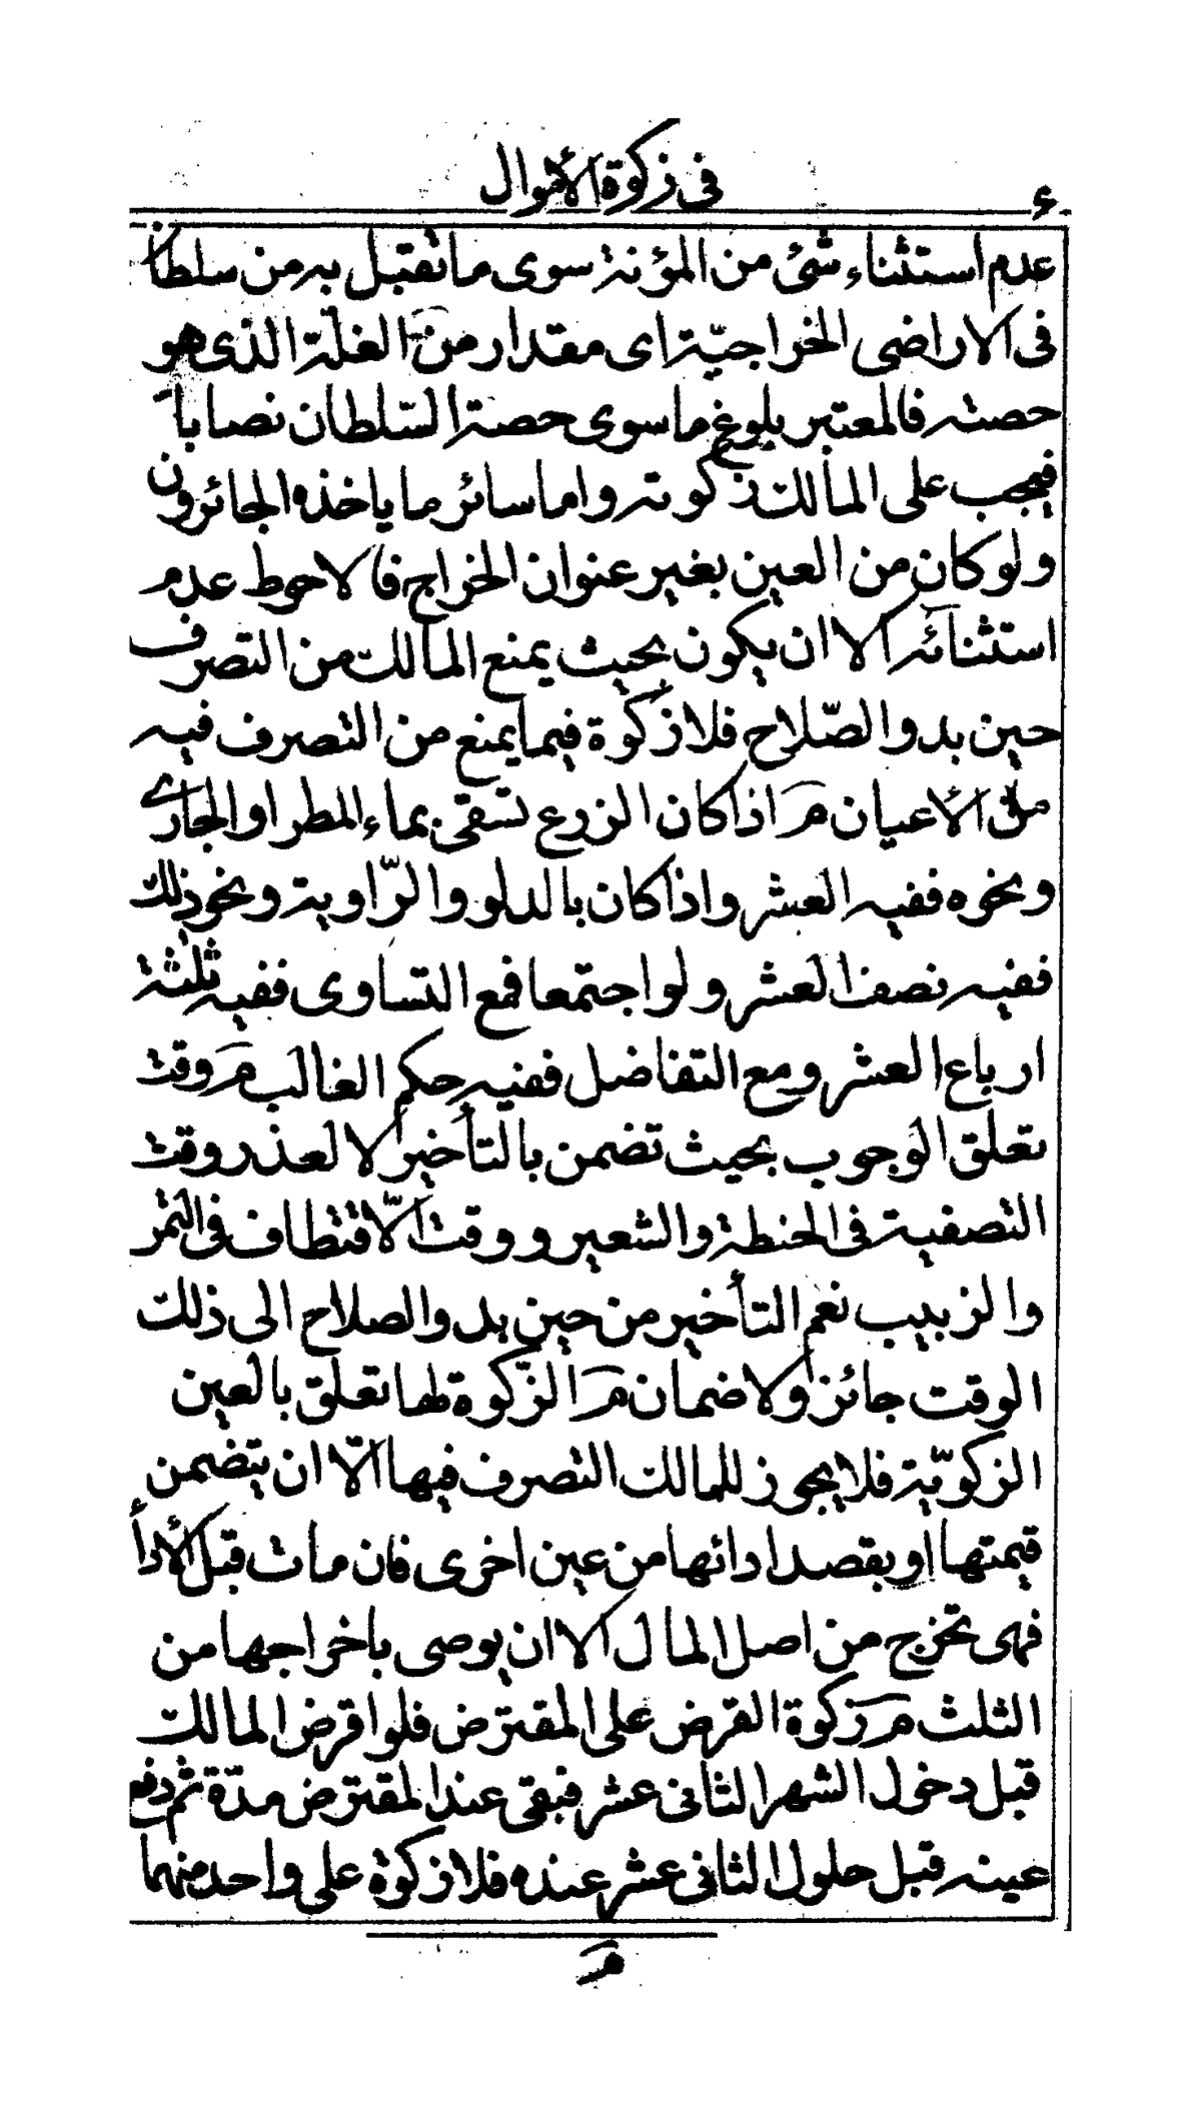 في زكوة الأموال
٤
عدم استثناء شئ من المؤنة سوى ما تقبل به من سلطان
في الاراضى الخراجيّة اى مقدار من الغلة الذى هو
حصته فالمعتبر بلوغ ما سوى حصة السّلطان نصابا
فيجب على المالك زكوته واما سائر ما ياخذه الجائرون
ولو كان من العين بغير عنوان الخراج فالاحوط عدم
استثنائه الا ان يكون بحيث يمنع المالك من التصرف
حين بدو الصّلاح فلا زكوة فيما يمنع من التصرف فيه
من الأعيان مَ اذا كان الزرع تسقى بماء المطر او الجارى
ونحوه ففيه العشر واذا كان بالدلو والرّاوية ونحو ذلك
ففيه نصف العشر ولو اجتمعا فمع التساوى ففيه ثلثة
ارباع العشر ومع التفاضل ففيه حكم الغالب مَ وقت
تعلق الوجوب بحيث تضمن بالتأخير الا لعذر وقت
التصفية في الحنطة والشعير ووقت الاّقتطاف في التمر
والزبيب نعم التأخير من حين بدو الصلاح الى ذلك
الوقت جائز ولا ضمان مَ الزّكوة لها تعلق بالعين
الزكويّة فلا يجوز للمالك التصرف فيها الاّ ان يتضمن
قيمتها او بقصد ادائها من عين اخرى فان مات قبل الأداأ
فهى تخرج من اصل المال الا ان يوصى باخراجها من
الثلث مَ زكوة القرض على المقترض فلو اقرض المالك
قبل دخول الشهر الثانى عشر فبقى عند المقترض مدّة ثم دفع
عينه قبل حلول الثانى عشر عنده فلا زكوة على واحد منهما
مَ